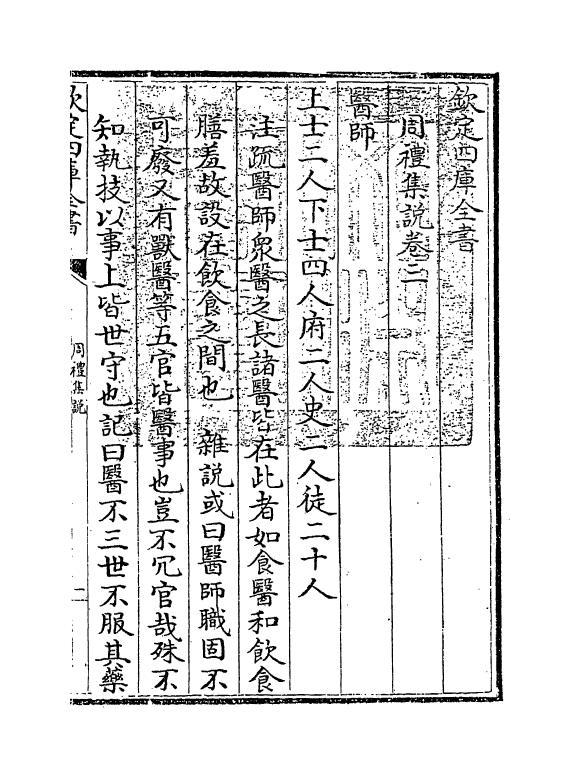 欽定四庫全書
周禮集說卷三
醫師
上士二人下士四人府二人史二人徒二十人
注疏醫師衆醫之長諸醫皆在此者如食醫和飲食
膳羞故設在飲食之間也　雜說或曰醫師職固不
可廢又有獸醫等五官皆醫事也豈不冗官哉殊不
知執技以事上皆世守也記曰醫不三世不服其藥
欽定四庫全書
周禮集說